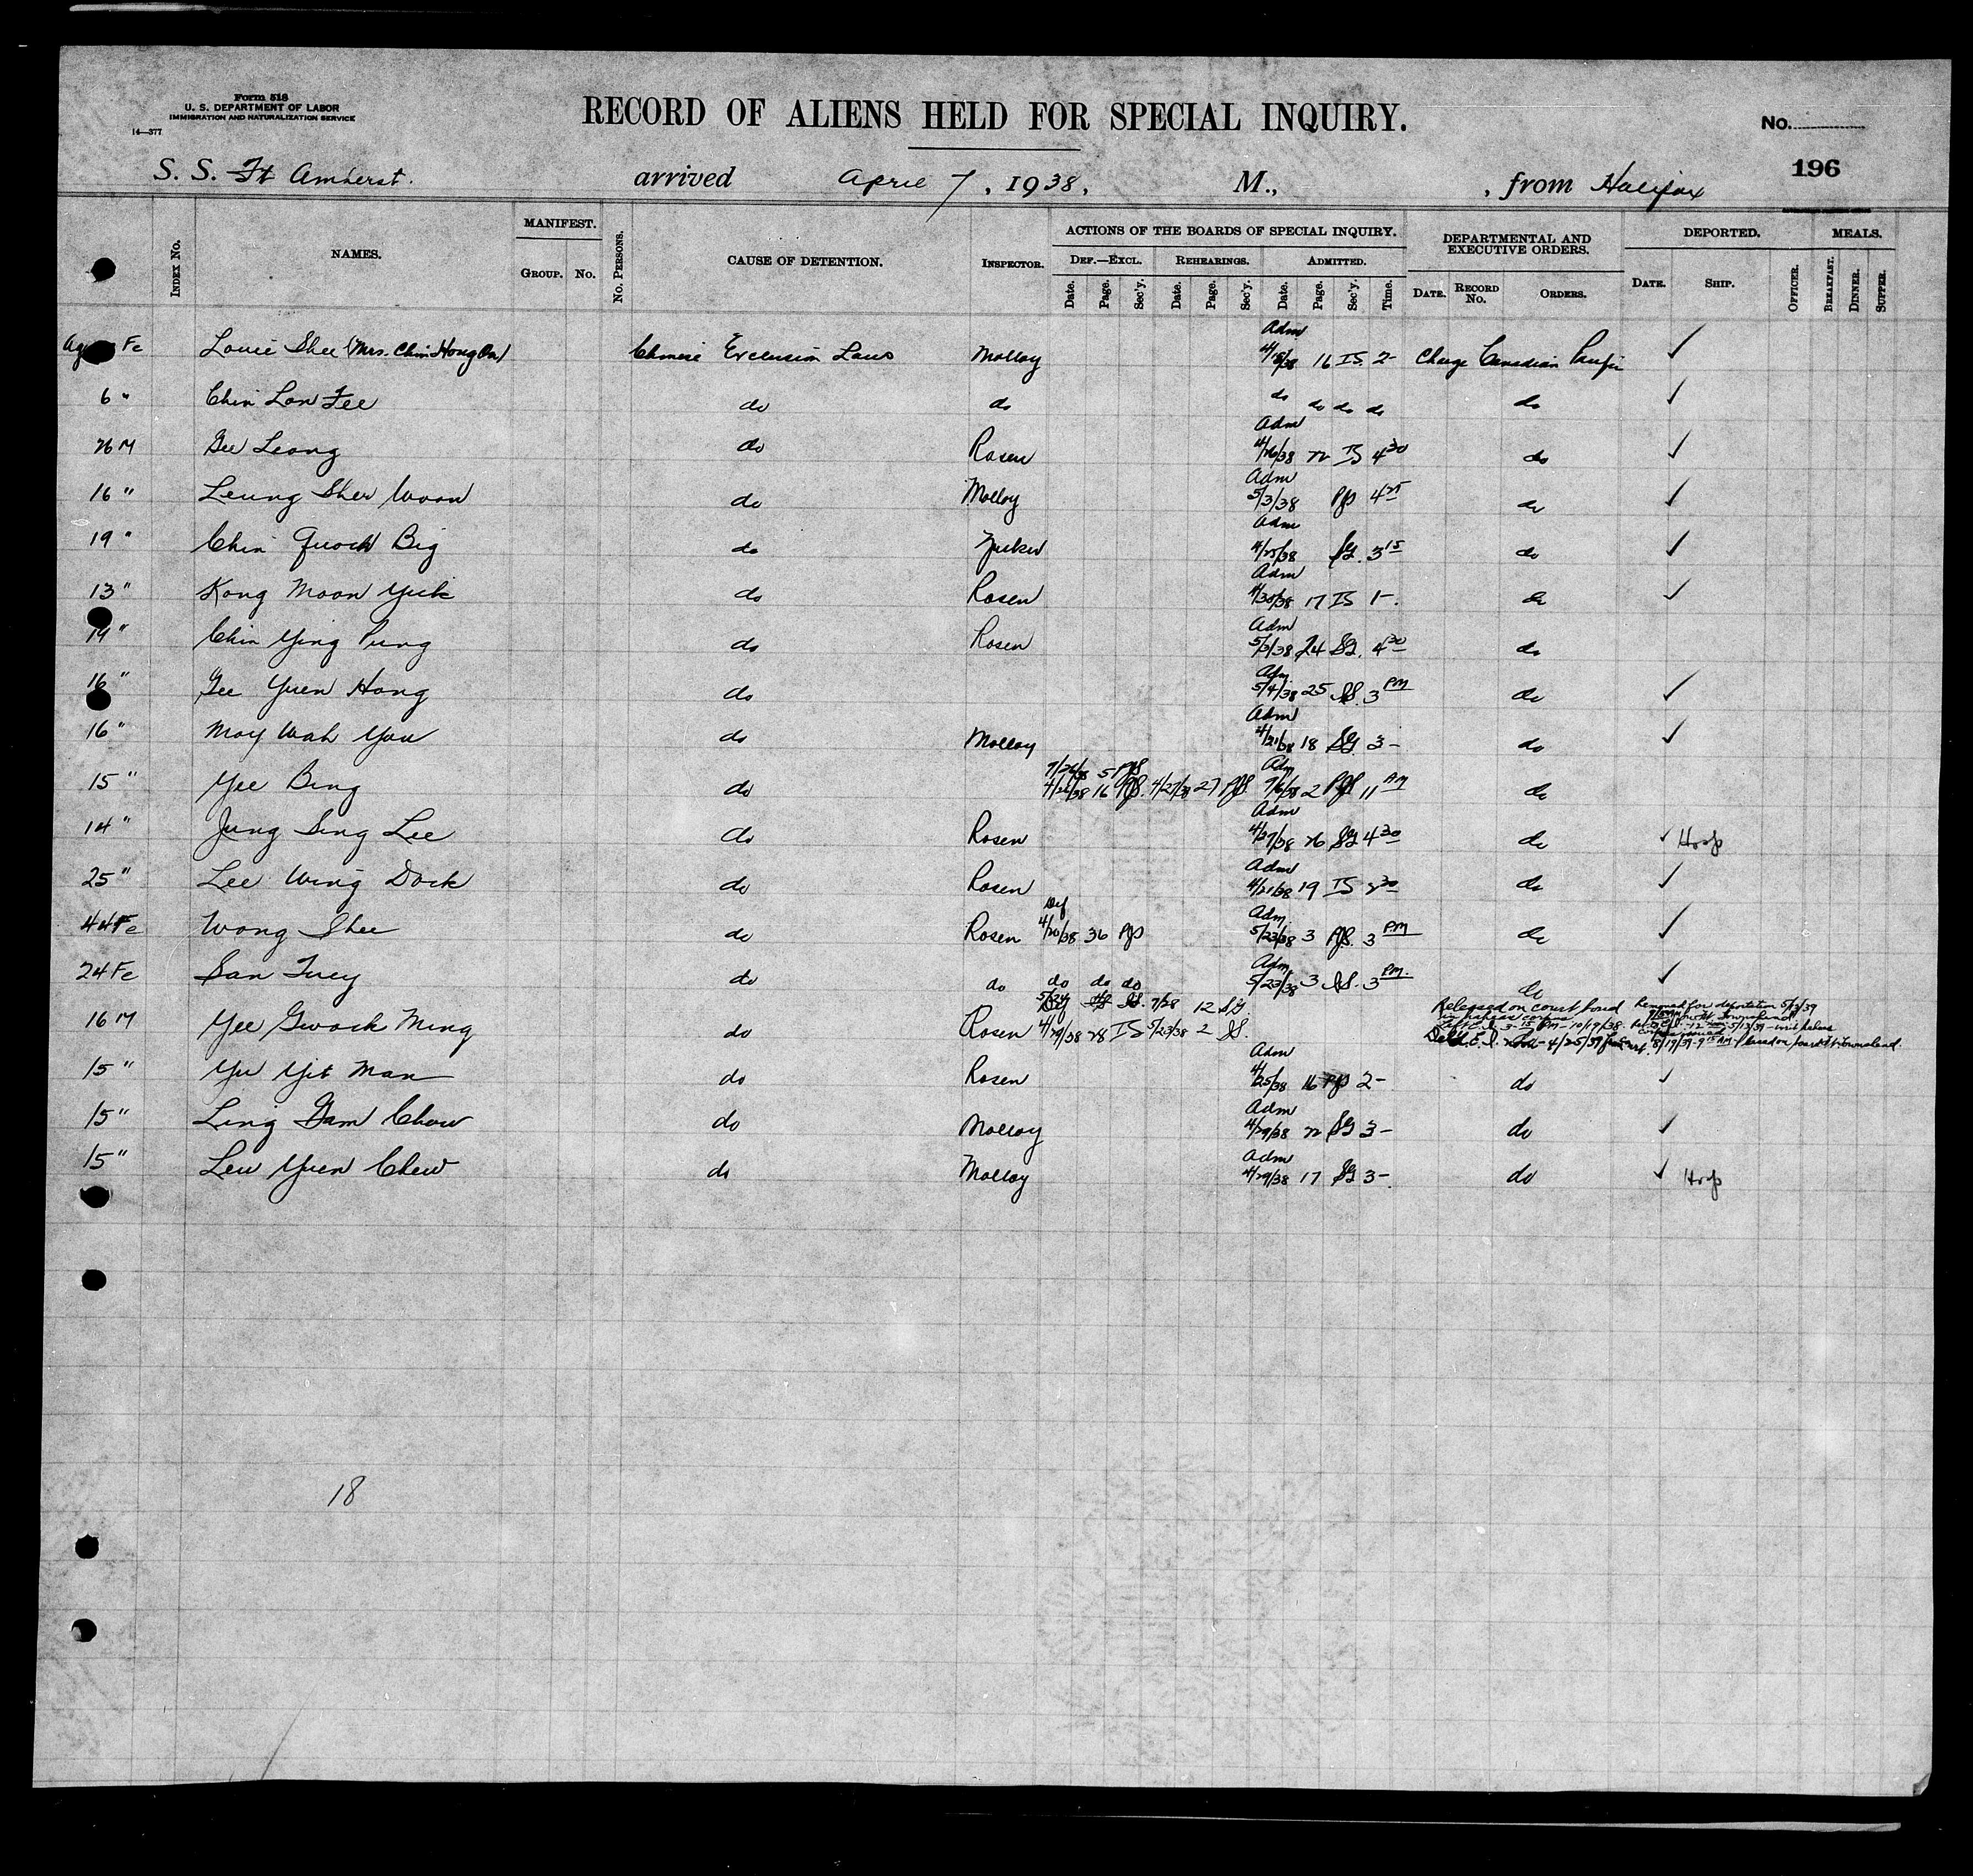 Form 518
U. S. DEPARTMENT OF LABOR
IMMIGRATION AND NATURALIZATION SERVICE
14—377
RECORD OF ALIENS HELD FOR SPECIAL INQUIRY.
No.
196
S. S. Ft Amherst. arrived April 7, 1938, M., , from Halifax
Index No. NAMES. MANIFEST. Group. No. No. Persons. CAUSE OF DETENTION. Inspector. ACTIONS OF THE BOARDS OF SPECIAL INQUIRY. Def.—Excl. Date. Page. Sec'y. Rehearings. Date. Page. Sec'y. Admitted. Date. Page. Sec'y. Time. DEPARTMENTAL AND EXECUTIVE ORDERS. Date. Record No. Orders. DEPORTED. Date. Ship. Officer. MEALS. Breakfast. Dinner. Supper.
Fe Louie Shee (Mrs. Chin Hong On) Chinese Exclusion Laws Molloy Adm 16 IS 2- Charge Canadian Pacific ✓
6 " Chin Lon Fee do do do do do do do ✓
26 M Gee Leong do Rosen Adm 4/26/38 IS 4 30 do ✓
16 " Leung Sher Woon do Molloy Adm 5/3/38 PJS 4 25 do ✓
19 " Chin Quock Big do Zucker Adm 4/25/38 SG. 3 15 do ✓
13 " Kong Moon Yuk do Rosen Adm 4/30/38 17 IS 1-. do ✓
14 " Chin Ying Pung do Rosen Adm 5/3/38 24 SG. 4 30 do
16 " Gee Yuen Hong do Adm. 5/4/38 25 3 PM do ✓
16 " Moy Wah You do Molloy Adm 4/21/38 18 SG 3- do ✓
15 " Yee Bing do 4/26/38 16 PJS. 4/27/38 27 PJS. Adm 7/6/38 2 PJS 11 AM do
14 " Jung Sing Lee do Rosen Adm 4/27/38 26 SG 4 30 do ✓ Hosp
25 " Lee Wing Dock do Rosen Adm 4/21/38 19 IS 2 30 do ✓
44 Fe Wong Shee do Rosen Def 4/20/38 36 PJS Adm. 5/23/38 3 PJS. 3 PM do ✓
24 Fe San Tuey do do do do do Adm. 5/23/38 3 3 PM. do ✓
16 M Yee Gwock Ming do Rosen 4/29/38 28 IS 5/23/38 2 7/28 12 SG. Released on court bond
15 " Yu Yit Man do Rosen Adm 4/25/38 16 PJS 2- do ✓
15 " Ling Gam Chow do Molloy Adm 4/29/38 SG 3- do ✓
15 " Lew Yuen Chew do Molloy Adm 4/29/38 17 SG 3- do ✓ Hosp
18